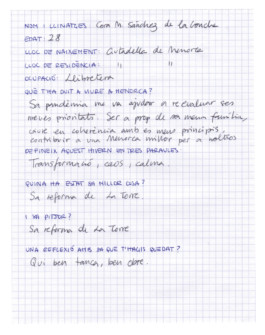 NOM I LLINATGES: Coro M. Sánchez de la Concha
EDAT: 28
LLOC DE NAIXEMENT: Ciutadella de Menorca
LLOC DE RESIDÈNCIA: " "
OCUPACIÓ: Llibretera
QUÈ T'HA DUIT A VIURE A MENORCA?
Sa pandèmia me va ajudar a reevaluar ses
meves prioritats. Ser a prop de sa meva família,
viure en coherència amb es meus principis,
contribuir a una Menorca millor per a noltros
DEFINEIX AQUEST HIVERN EN TRES PARAULES
Transformació, caos, calma.
QUINA HA ESTAT SA MILLOR COSA?
Sa reforma de La Torre.
I VA PITJOR?
Sa reforma de La Torre
UNA REFLEXIÓ AMB SA QUE T'HAGIS QUEDAT?
Qui ben tanca, ben obre.